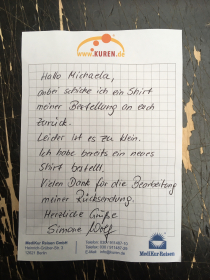 www.KUREN.de
Hallo Michaela,
anbei schicke ich ein Shirt
meiner Bestellung an euch
zurück.
Leider ist es zu klein.
Ich habe bereits ein neues
Shirt bestellt.
Vielen Dank für die Bearbeitung
meiner Rücksendung.
Herzliche Grüße
Simone Wolf
MediKur Reisen GmbH
MediKur-Reisen